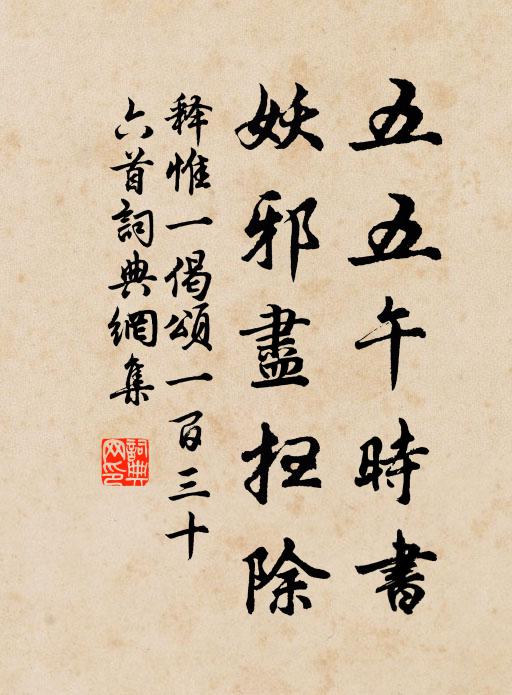 五五午時書
妖邪盡扫除
释惟一偈頌一百三十
六首詞典網集
詞典
网印